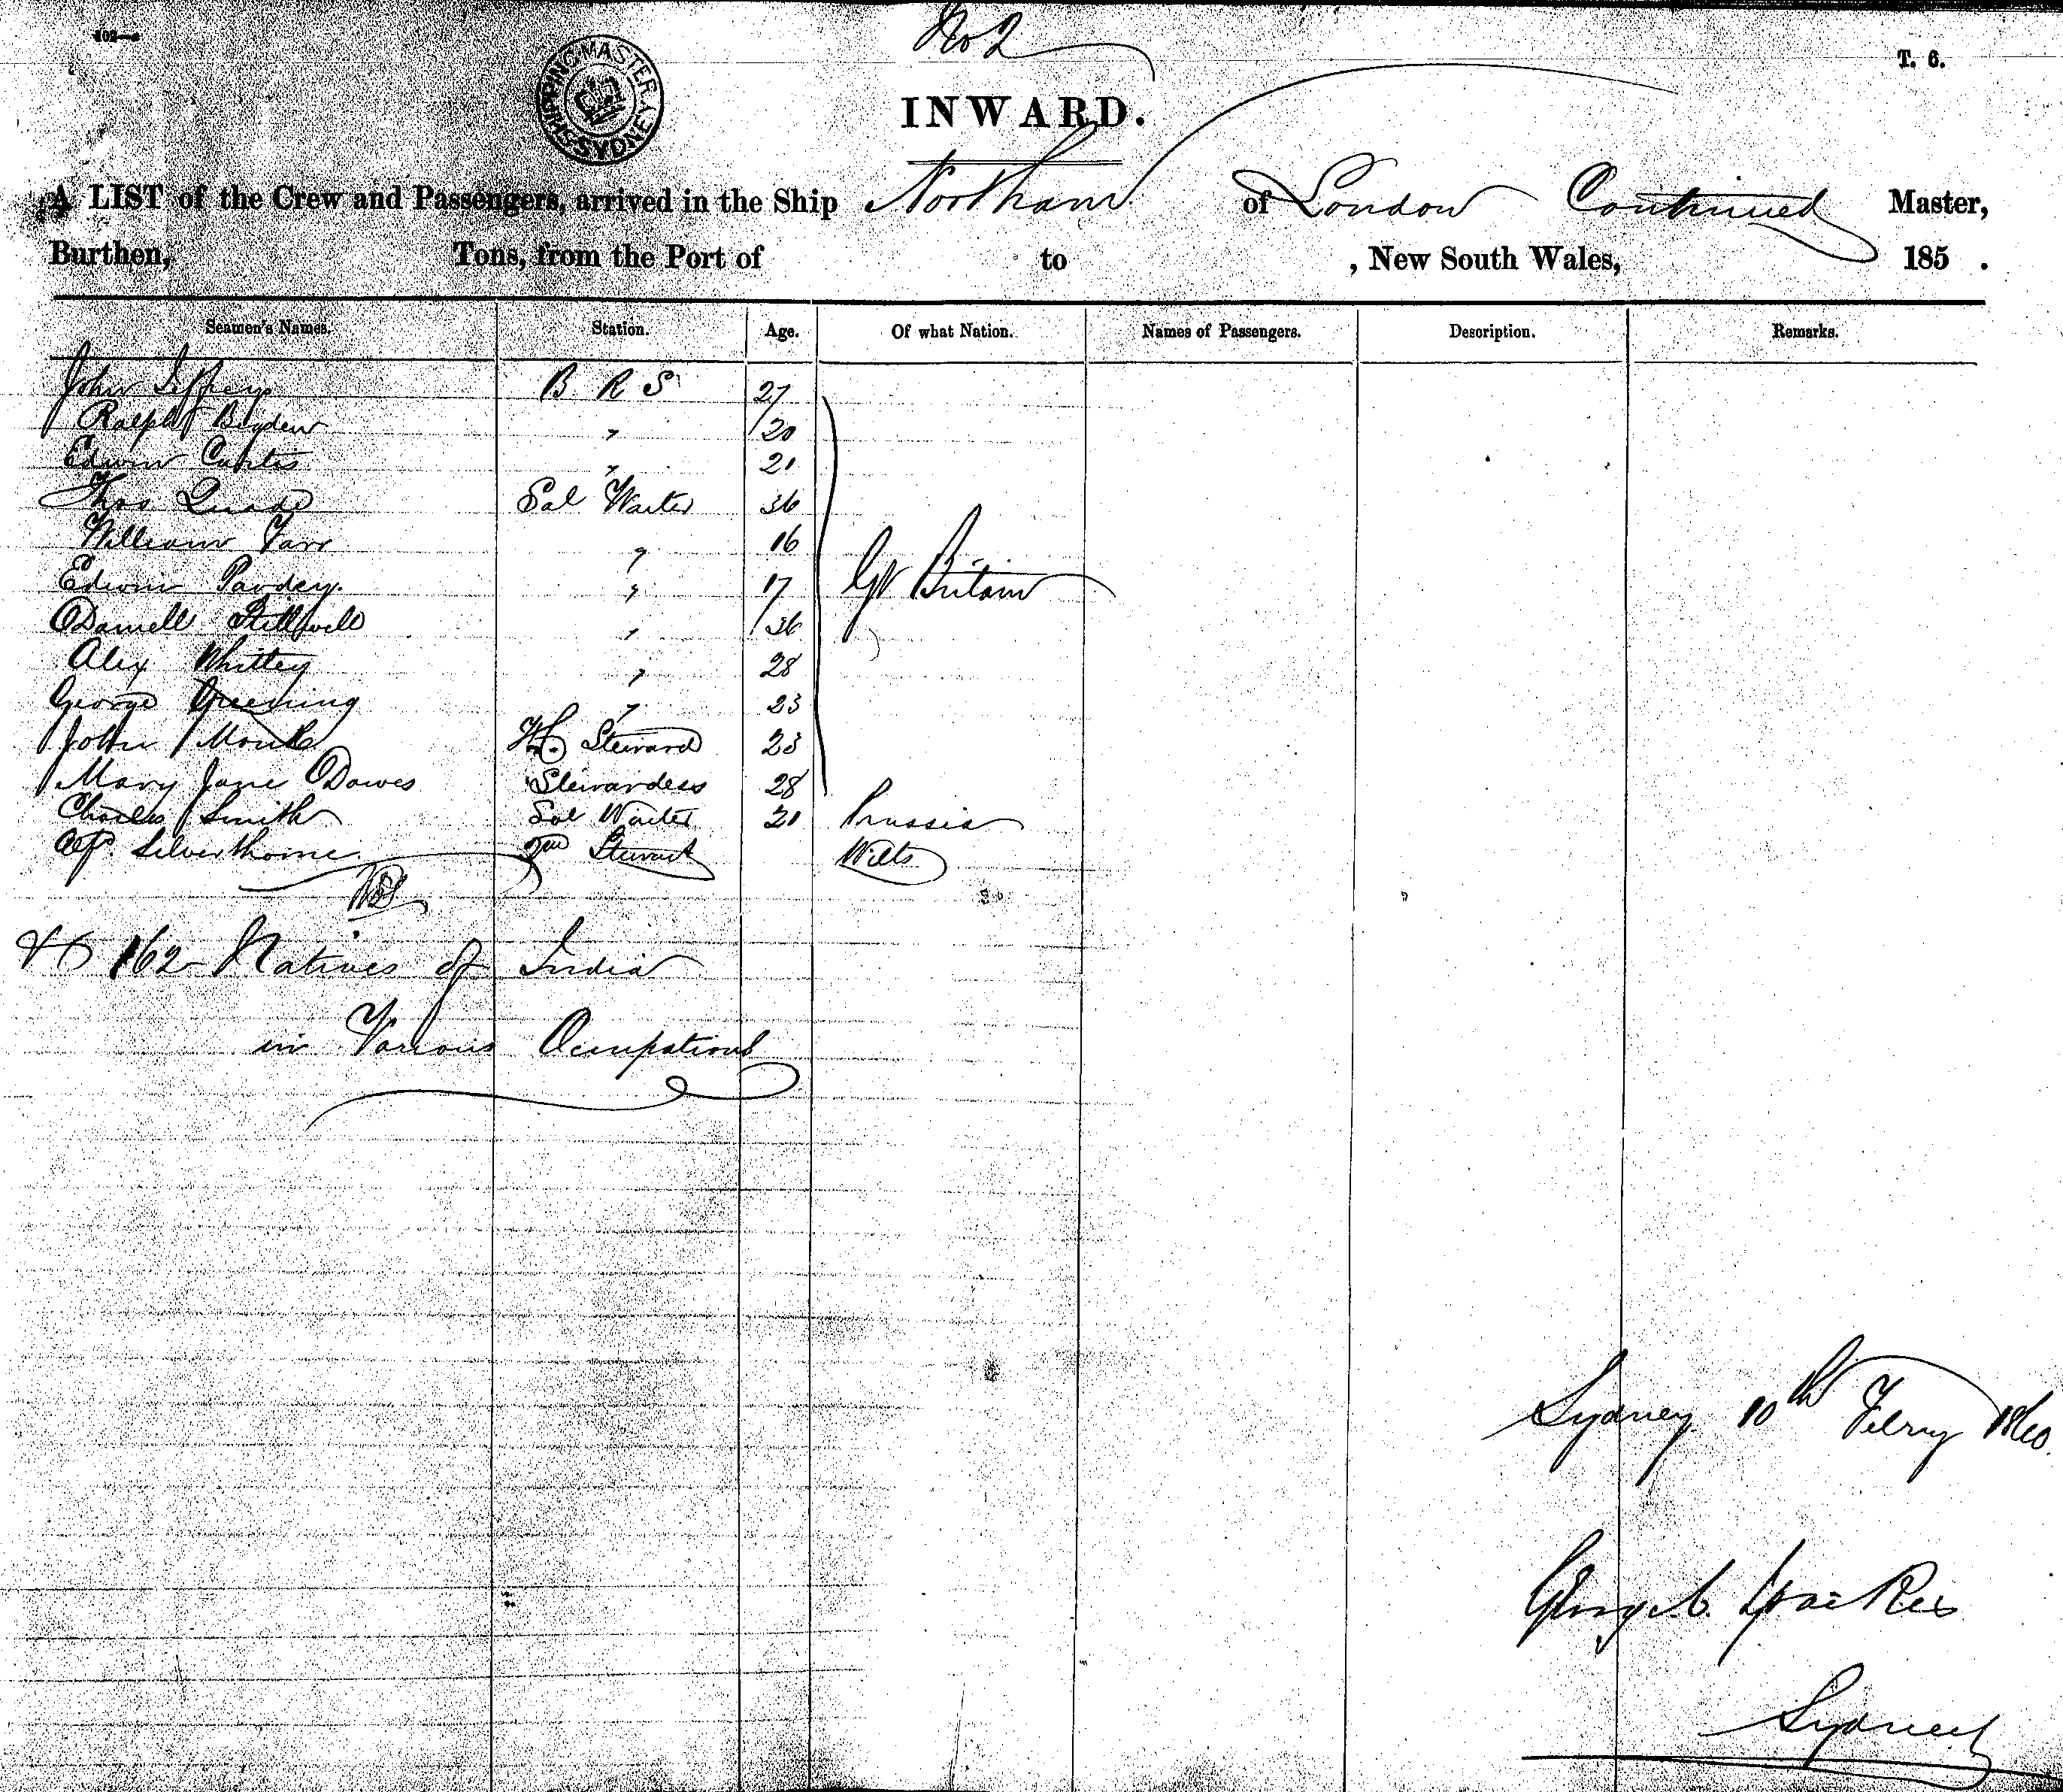 No 2
T. 6.
SHIPPING MASTER SYDNEY
INWARD.
A LIST of the Crew and Passengers, arrived in the Ship Northam of London Continued Master,
Burthen, Tons, from the Port of to , New South Wales, 185 .
Seamen's Names. Station. Age. Of what Nation. Names of Passengers. Description. Remarks.
John Jeffrey B R S 27
Ralph Bigden " 20
Edwin Curtis " 21
Thos Quade Sal Waiter 36
William Farr " 16
Edwin Pavdey. " 17 Gt Britain
Daniell Stillwell " 36
Alex Whitley " 28
George Greening " 23
John Monk Steward 23
Mary Jane Dawes Stewardess 28
Charles Smith Sal Waiter 21 Prussia
Silverthorne Steward Wilts
162 Natives of India
in Various Occupations
Sydney 10th Febry 1860.
George
Sydney